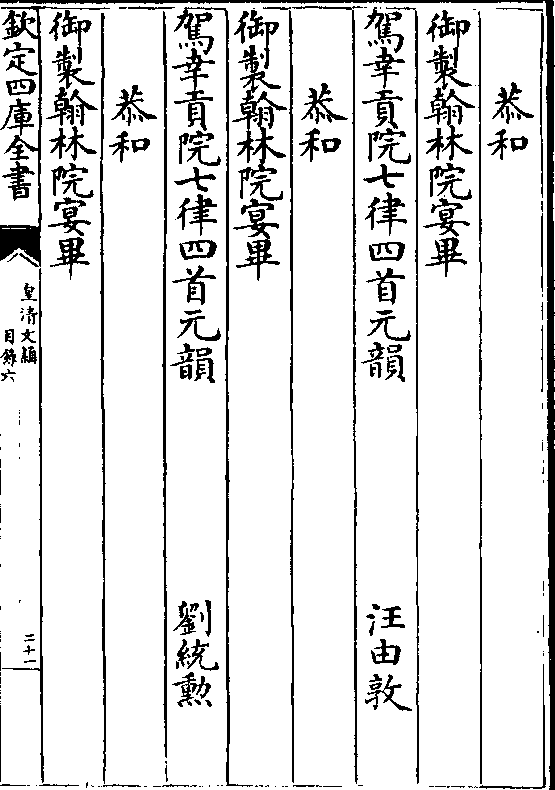 恭和
御製翰林院宴畢
駕幸貢院七律四首元韻 汪由敦
恭和
御製翰林院宴畢
駕幸貢院七律四首元韻 劉統勲
恭和
御製翰林院宴畢
欽定四庫全書
皇清文穎
目錄六
二十一